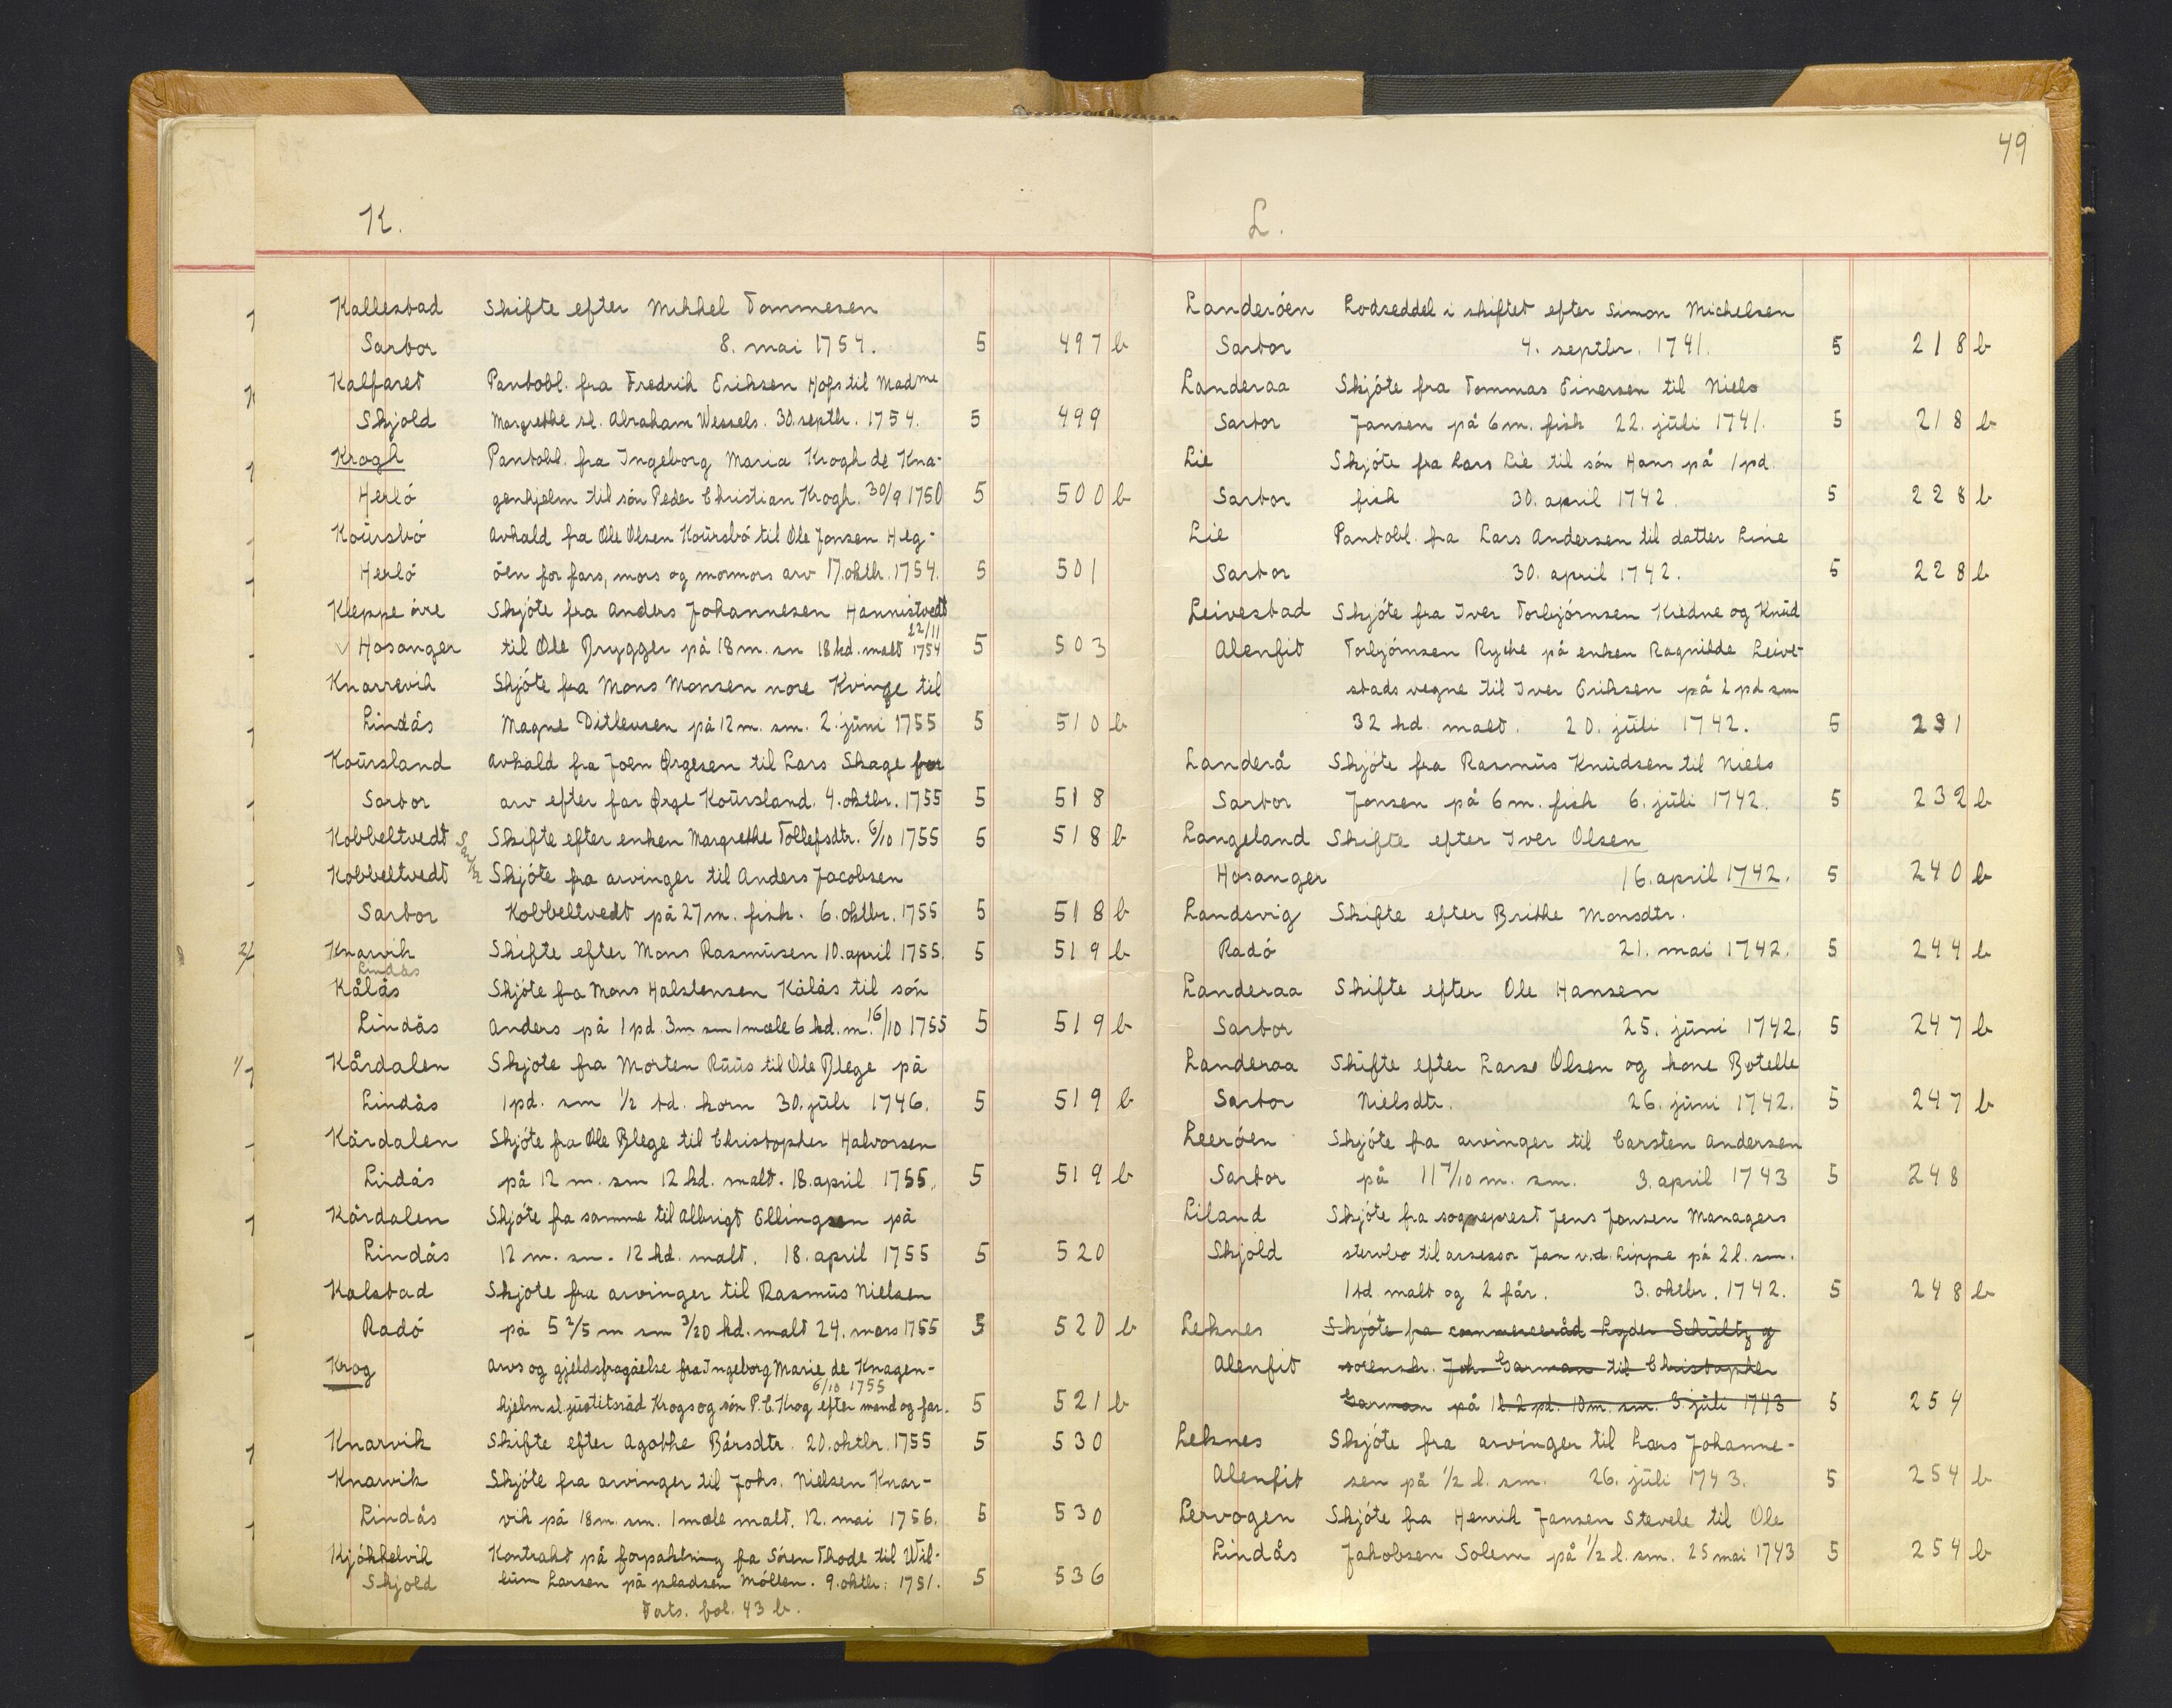 K.
Kallestad Skifte efter Mikkel Tommesen
Sartor 8. mai 1754. 5 497 b
Kalfaret Pantobl. fra Fredrik Eriksen Hofs til Madme
Skjold Margrethe sl. Abraham Wessels. 30. septbr. 1754. 5 499
Krogh Pantobl. fra Ingeborg Maria Krogh de Kna-
Herlö genhjelm til sön Peder Christian Krogh. 30/9 1750 5 500 b
Koursbö Avkald fra Ole Olsen Koursbö til Ole Jonsen Heg-
Herlö öen for fars, mors og mormors arv 17. oktbr. 1754. 5 501
Kleppe övre Skjöte fra Anders Johannesen Hannistvedt
Hosanger til Ole Brygger på 18 m. sm 18 kd. malt 22/11 1754 5 503
Knarrevik Skjöte fra Mons Monsen nore Kvinge til
Lindås Magne Ditlevsen på 12 m. sm. 2. juni 1755 5 510 b
Koursland Avkald fra Joen Örgesen til Lars Skage for
Sartor arv efter far Örge Koursland. 4. oktbr. 1755 5 518
Kobbeltvedt Sartor Skifte efter enken Margrethe Tollefsdtr. 6/10 1755 5 518 b
Kobbeltvedt Skjöte fra arvinger til Anders Jacobsen
Sartor Kobbeltvedt på 27 m. fisk. 6. oktbr. 1755 5 518 b
Knarvik Skifte efter Mons Rasmusen 10. april 1755. 5 519 b
Lindås
Kålås Skjöte fra Mons Halstensen Kålås til sön
Lindås Anders på 1 pd. 3 m sm 1 mæle 6 kd. m. 16/10 1755 5 519 b
Kårdalen Skjöte fra Morten Ruus til Ole Blege på
Lindås 1 pd. sm 1/2 td. korn 30. juli 1746. 5 519 b
Kårdalen Skjöte fra Ole Blege til Christopher Halvorsen
Lindås på 12 m. sm 12 kd. malt. 18. april 1755. 5 519 b
Kårdalen Skjöte fra samme til Albrigt Ellingsen på
Lindås 12 m. sm. 12 kd. malt. 18. april 1755 5 520
Kalstad Skjöte fra arvinger til Rasmus Nielsen
Radö på 5 2/5 m sm 3/20 kd. malt 24. mars 1755 5 520 b
Krog Arvs og gjeldsfragåelse fra Ingeborg Marie de Knagen-
6/10 1755
hjelm sl. justitsråd Krogs og sön P. C. Krog efter mand og far. 5 521 b
Knarvik Skifte efter Agathe Bårsdtr. 20. oktbr. 1755 5 530
Knarvik Skjöte fra arvinger til Johs. Nielsen Knar-
Lindås vik på 18 m. sm. 1 mæle malt. 12. mai 1756. 5 530
Kjökkelvik Kontrakt på forpaktning fra Sören Thode til Wil-
Skjold lum Larsen på pladsen Mölten. 9. oktbr. 1751. 5 536
Forts. fol. 43 b.
49
L.
Landeröen Lodseddel i skiftet efter Simon Michelsen
Sartor 4. septbr. 1741. 5 218 b
Landeraa Skjöte fra Tommas Einersen til Niels
Sartor Jansen på 6 m. fisk 22. juli 1741. 5 218 b
Lie Skjöte fra Lars Lie til sön Hans på 1 pd.
Sartor fisk 30. april 1742. 5 228 b
Lie Pantobl. fra Lars Andersen til datter Line
Sartor 30. april 1742. 5 228 b
Leivestad Skjöte fra Iver Torbjörnsen Kiedne og Knud
Alenfit Torbjörnsen Rychе på enken Ragnilde Leive-
stads vegne til Iver Eriksen på 2 pd sm
32 kd. malt. 20. juli 1742. 5 231
Landerå Skjöte fra Rasmus Knudsen til Niels
Sartor Jonsen på 6 m. fisk 6. juli 1742. 5 232 b
Langeland Skifte efter Iver Olsen
Hosanger 16. april 1742. 5 240 b
Landsvig Skifte efter Brithe Monsdtr.
Radö 21. mai 1742. 5 244 b
Landeraa Skifte efter Ole Hansen
Sartor 25. juni 1742. 5 247 b
Landeraa Skifte efter Larse Olsen og kone Botelle
Sartor Nielsdtr. 26. juni 1742. 5 247 b
Leeröen Skjöte fra arvinger til Carsten Andersen
Sartor på 11 7/10 m. sm. 3. april 1743 5 248
Liland Skjöte fra sogneprest Jens Jansen Managers
Skjold stervbo til assessor Jan v.d. Lippe på 2 l. sm.
1 td. malt og 2 får. 3. oktbr. 1742. 5 248 b
Leknes Skjöte fra commerceråd Lyder Schultz og
Alenfit sorenskr. Joh. Garman til Christopher
Garman på 1 l. 2 pd. 10 m. sm. 3. juli 1743 5 254
Leknes Skjöte fra arvinger til Lars Johanne-
Alenfit sen på 1/2 l. sm. 26. juli 1743. 5 254 b
Lervogen Skjöte fra Henrik Jansen Stevele til Ole
Lindås Jakobsen Solem på 1/2 l. sm. 25 mai 1743 5 254 b